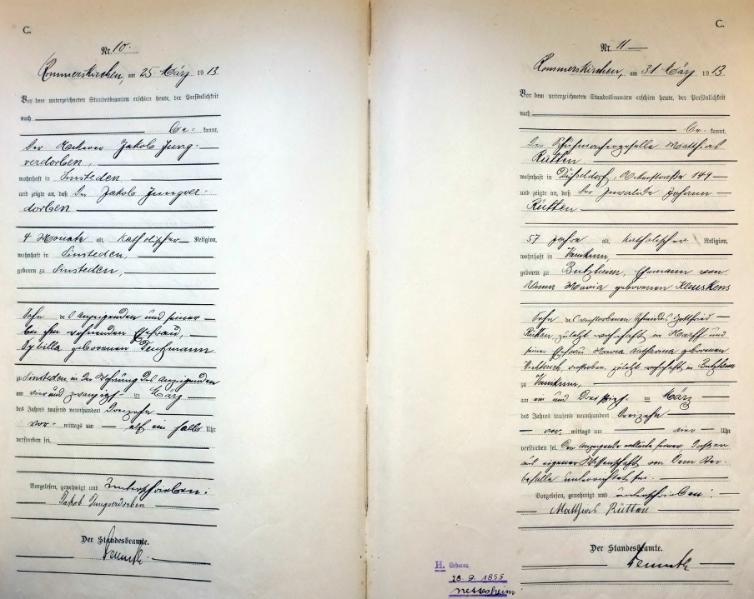 C.
Nr. 10.
Rommerskirchen, am 25 März 1913.
Vor dem unterzeichneten Standesbeamten erschien heute, der Persönlichkeit
nach
be- kannt,
der Jakob Jung-
verdorben,
wohnhaft in Sinsteden
und zeigte an, daß der Jakob Jungver-
dorben
4 Monate alt, katholischer Religion,
wohnhaft in Sinsteden,
geboren zu Sinsteden,
Sohn des Anzeigenden und seiner
bei ihm wohnenden Ehefrau,
Sybilla geborenen
zu Sinsteden in der Wohnung des Anzeigenden
am vier und zwanzigsten März
des Jahres tausend neunhundert dreizehn
vor- mittags um elf ein halb Uhr
verstorben sei.
Vorgelesen, genehmigt und unterschrieben:
Jakob Jungverdorben
Der Standesbeamte.
C.
Nr. 11
Rommerskirchen, am 31 März 1913.
Vor dem unterzeichneten Standesbeamten erschien heute, der Persönlichkeit
nach
be- kannt,
der Schuhmachergeselle Matthias
Rütten
wohnhaft in Düsseldorf, 149
und zeigte an, daß der Invalide Johann
Rütten
57 Jahre alt, katholischer Religion,
wohnhaft in
geboren zu Butzheim, Ehemann von
Anna Maria geborenen
Sohn des verstorbenen Gottfried
Rütten zuletzt wohnhaft in und
seiner Ehefrau Maria Katharina geborenen
verstorben, zuletzt wohnhaft in Butzheim
zu
am ein und dreißigsten März
des Jahres tausend neunhundert dreizehn
vor- mittags um vier Uhr
verstorben sei. Der Anzeigende erklärte
aus eigener Wissenschaft von dem Ster-
befalle unterrichtet sei.
Vorgelesen, genehmigt und unterschrieben:
Matthias Rütten
Der Standesbeamte.
H. Geboren
28. 9. 1855
Nettesheim